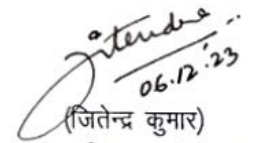 Jitendra
06.12.23
(जितेन्द्र कुमार)